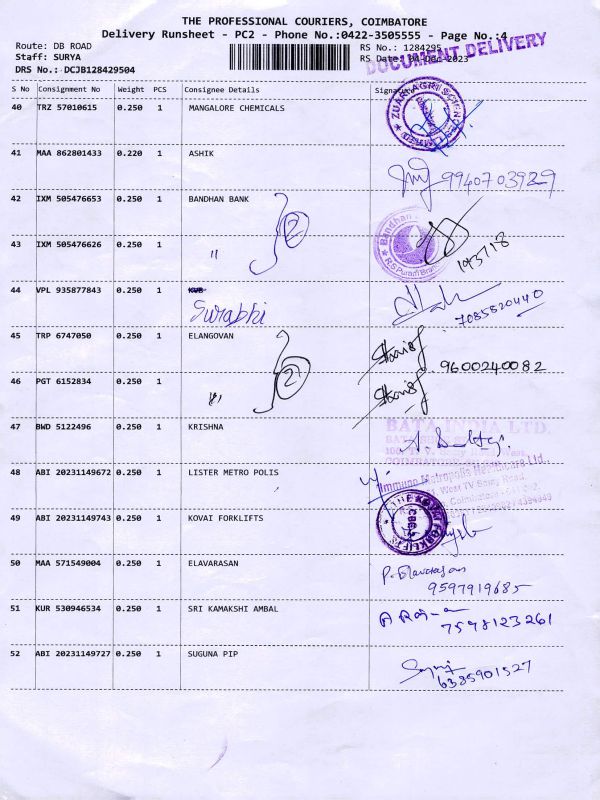 THE PROFESSIONAL COURIERS, COIMBATORE
Delivery Runsheet - PC2 - Phone No.:0422-3505555 - Page No.:4
Route: DB ROAD RS No.: 1284295
Staff: SURYA RS Date: Dec-2023
DOCUMENT DELIVERY
DRS No.: DCJB128429504
S No Consignment No Weight PCS Consignee Details Signature
40 TRZ 57010615 0.250 1 MANGALORE CHEMICALS
ZUARI AGRI SCIENCES LIMITED
41 MAA 862801433 0.220 1 ASHIK
9940703929
42 IXM 505476653 0.250 1 BANDHAN BANK
2
Bandhan
R S Puram Branch
43 IXM 505476626 0.250 1 "
193718
44 VPL 935877843 0.250 1
Surabhi
7085820440
45 TRP 6747050 0.250 1 ELANGOVAN
2
9600240082
46 PGT 6152834 0.250 1 "
47 BWD 5122496 0.250 1 KRISHNA
BATA INDIA LTD.
48 ABI 20231149672 0.250 1 LISTER METRO POLIS
Immuno Metropolis Healthcare Ltd.
49 ABI 20231149743 0.250 1 KOVAI FORKLIFTS
THE KOVAI FORKLIFTS
CBE-
50 MAA 571549004 0.250 1 ELAVARASAN
P. Elavarasan
9597919685
51 KUR 530946534 0.250 1 SRI KAMAKSHI AMBAL
7598123261
52 ABI 20231149727 0.250 1 SUGUNA PIP
6385901527